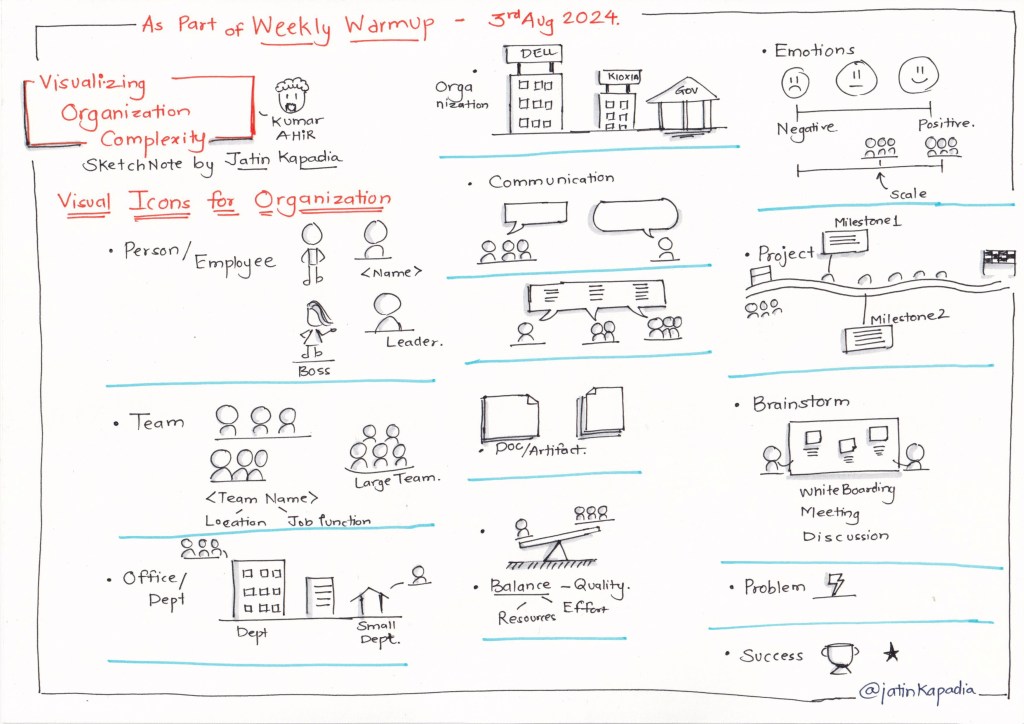 As Part of Weekly Warmup - 3rd Aug 2024.
Visualizing
Organization
Complexity
Kumar
AHIR
SketchNote by Jatin Kapadia
Visual Icons for Organization
• Person/
Employee
<Name>
Leader.
Boss
• Team
Large Team.
<Team Name>
Location Job function
• Office/
Dept
Dept
Small
Dept.
• Orga
nization
DELL
KIOXIA
GOV
• Communication
• Doc/Artifact.
• Balance - Quality.
Resources Effort
• Emotions
Negative Positive.
Scale
• Project
Milestone1
Milestone2
• Brainstorm
WhiteBoarding
Meeting
Discussion
• Problem
• Success
@jatinkapadia